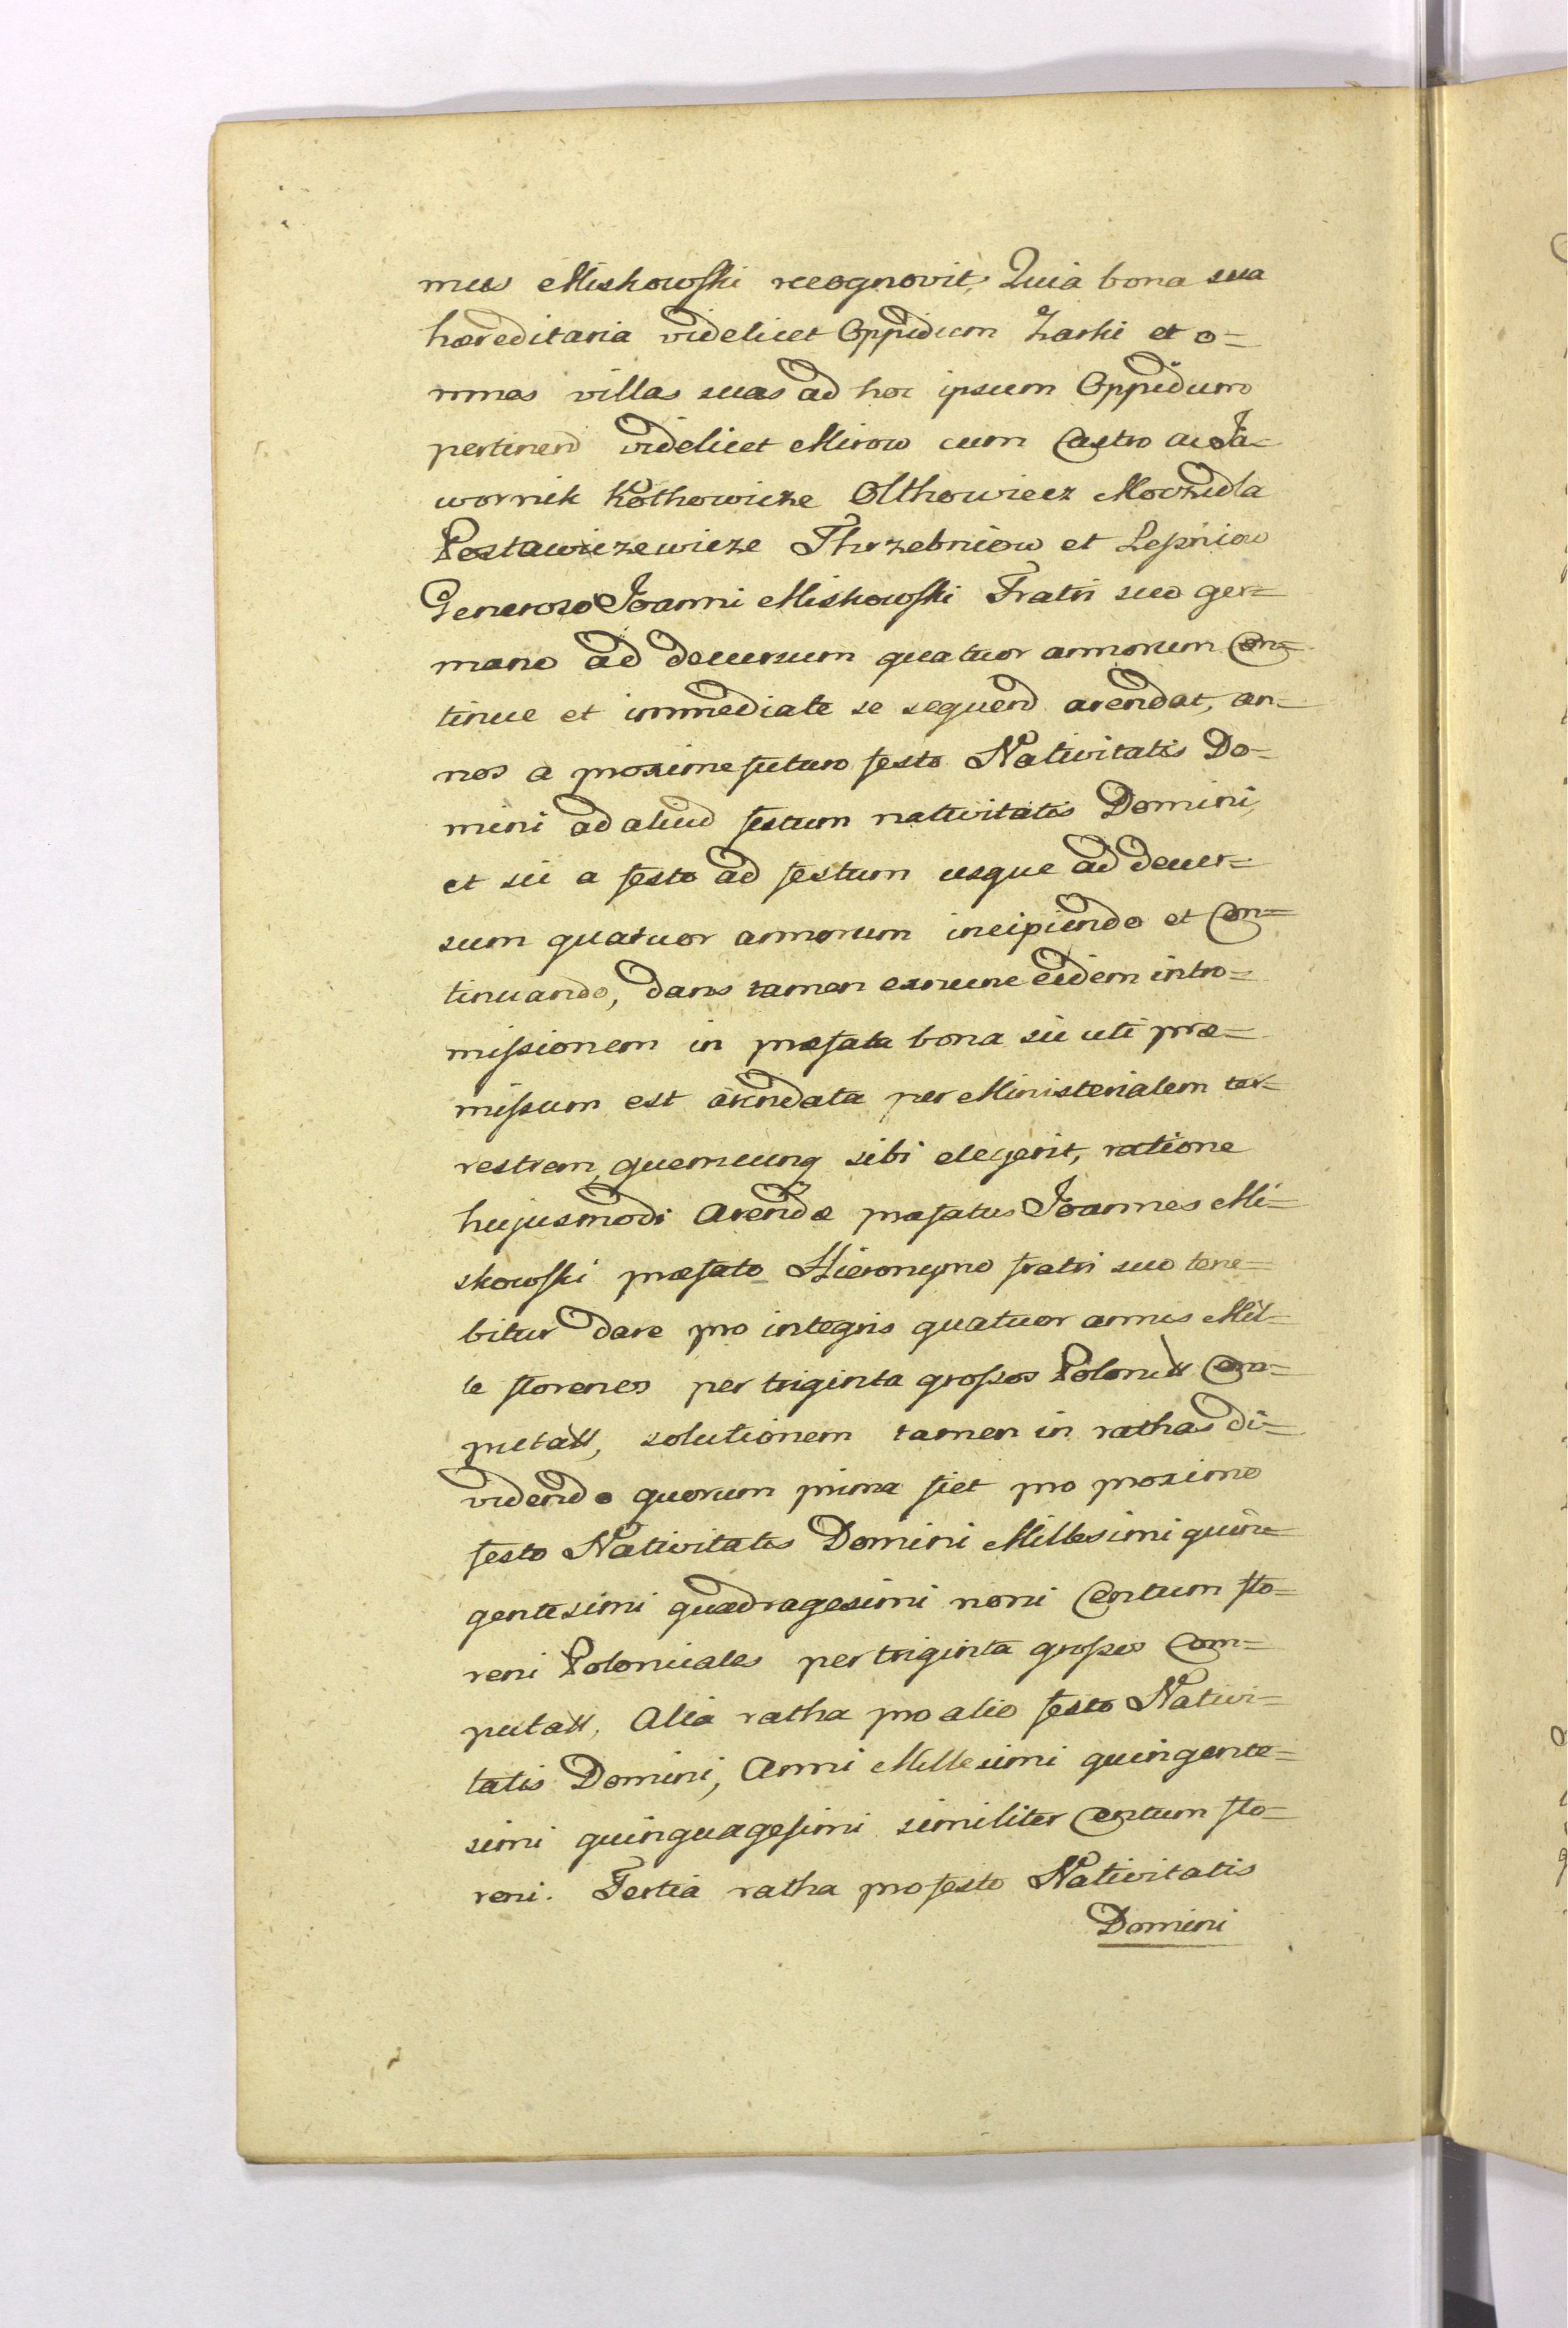 mus Miskowſki recognovit, Quia bona sua
hæreditaria videlicet Oppidum Zarki et o=
mnes villas suas ad hoc ipsum Oppidum
pertinend videlicet Mirow cum Castro ac Ja=
wornik Kothowicze Olthowiecz Moczidla
Postawiczewicze Thrzebniow et Lesniow
Generoso Joanni Miskowſki Fratri suo ger=
mano ad decursum quatuor annorum Con=
tinue et immediate se sequend arendat, an=
nos a proxime futuro festo Nativitatis Do=
mini ad aliud festum nativitatis Domini,
et sic a festo ad festum usque ad decur=
sum quatuor annorum incipiendo et Con=
tinuando, dans tamen exnunc eidem intro=
miſsionem in præfata bona sic uti præ=
miſsum est arendata per Ministerialem ter=
restrem, quemcunq sibi elegerit, ratione
hujusmodi Arendæ præfatus Joannes Mi=
skowſki præfato Hieronymo fratri suo tene=
bitur dare pro integris quatuor annis Mil=
le florenos per triginta groſsos Polonill Com=
putall, solutionem tamen in rathas di=
videndo quorum prima fiet pro proximo
festo Nativitatis Domini Millesimi quin=
gentesimi quadragesimi noni Centum flo=
reni Polonicales per triginta groſsos Com=
putall, Alia ratha pro alio festo Nativi=
tatis Domini, Anni Millesimi quingente=
simi quinquageſimi similiter Centum flo=
reni. Tertia ratha pro festo Nativitatis
Domini